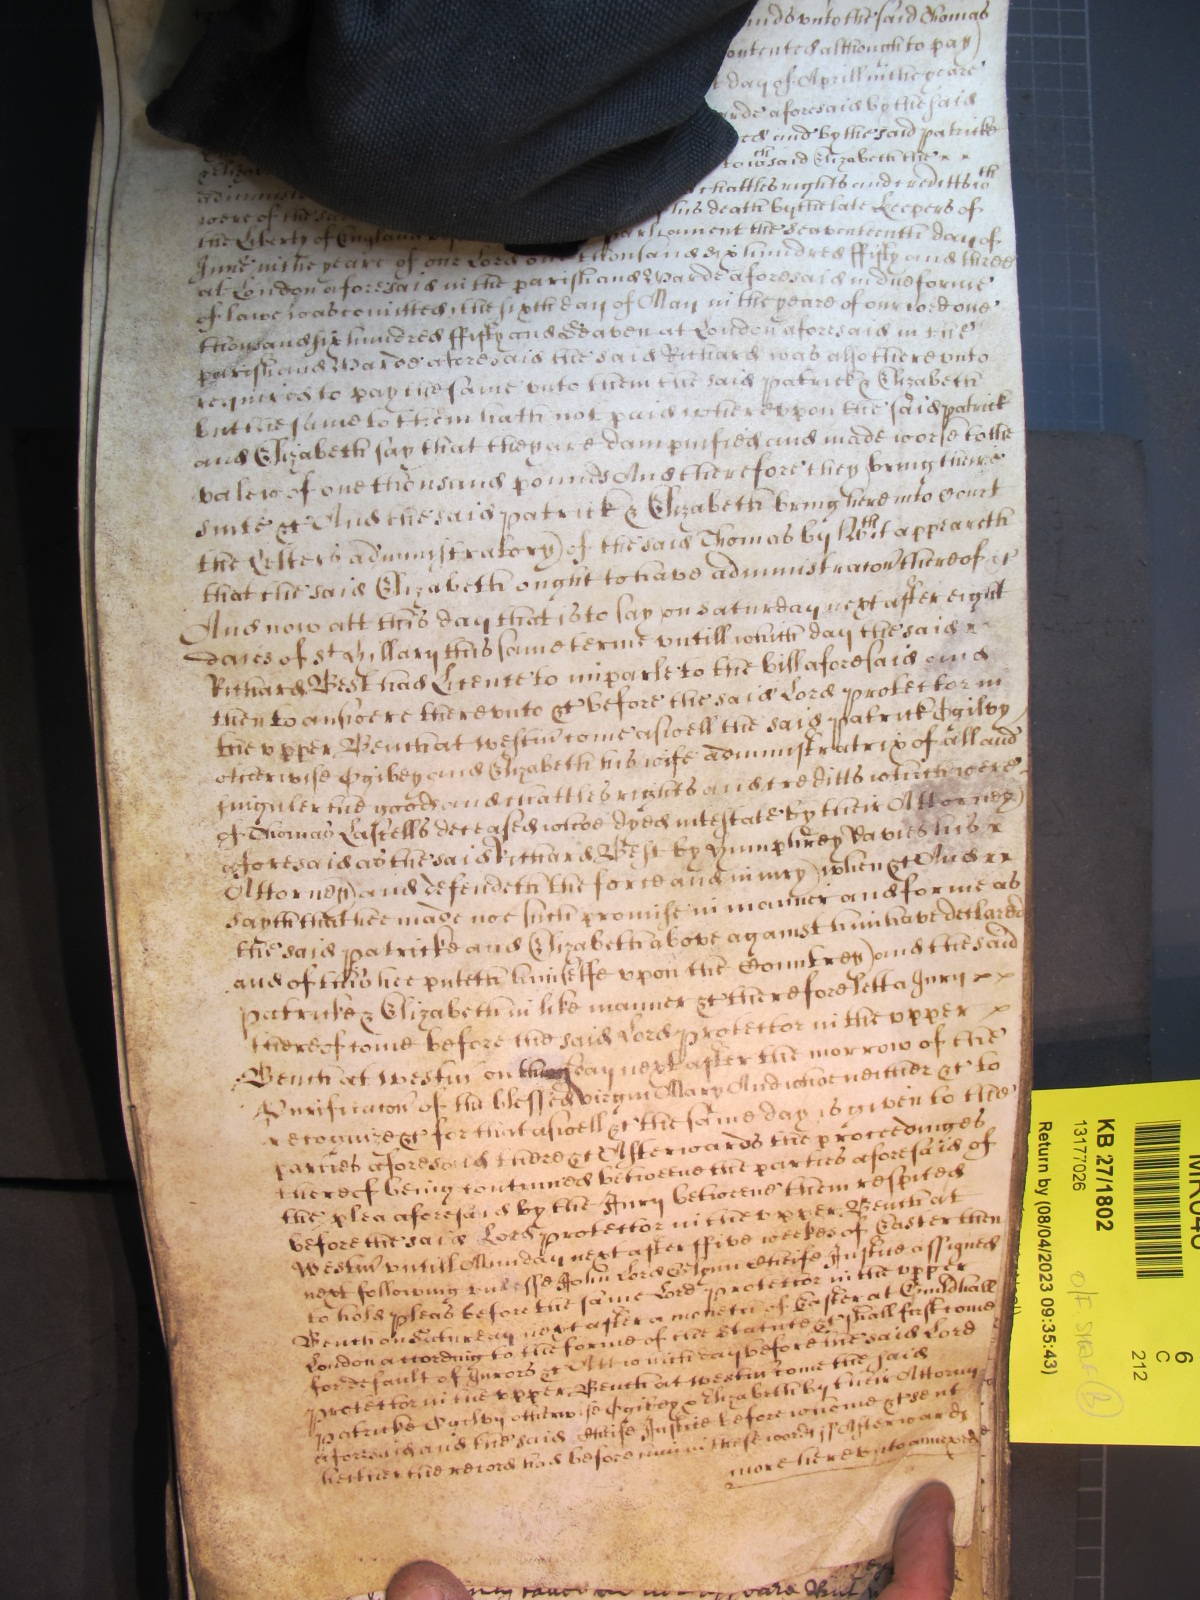 unds vnto the said Thomas
ontented although to pay
t day of Aprill in the yeare
arde aforesaid by the said
ed and by the said Patricke
to wth said Elizabeth the
administ chattles rights and creditts wth
were of the sa his death by the late Keepers of
the Liberty of England parliament the seaventeenth day of
June in the yeare of our Lord one thousand six hundred fifty and three
at London aforesaid in the parish and Warde aforesaid in due forme
of lawe was comitted, the sixth day of May in the yeare of our Lord one
thousand six hundred ffifty and Seaven at London aforesaid in the
parish and Warde aforesaid the said Richard was also there vnto
required to pay the same vnto them the said Patrick & Elizabeth
but the same to them hath not paid wherevpon the said Patrick
and Elizabeth say that they are dampnified and made worse to the
valew of one thousand pounds And therefore they bring there
suite &c And the said Patrick & Elizabeth bring here into Court
the Letters administratory of the said Thomas by wch it appeareth
that the said Elizabeth ought to have administracon thereof &c
And now att this day that is to say on Saturday next after eight
daies of St Hillary this same terme vntill which day the said
Richard Best had Licence to imparle to the bill aforesaid and
then to answere therevnto &c before the said Lord Protector in
the vpper Bench at Westm come aswell the said Patrick Ogilvy
otherwise Ogivey and Elizabeth his wife administratrix of all and
singuler the goods and chattles rights and creditts which were
of Thomas Lassells deceased whoe dyed intestate by their Attorney
aforesaid as the said Richard Best by Humphrey Davies his
Attorney and defendeth the force and iniury when &c And
sayth that hee made noe such promise in manner and forme as
the said Patricke and Elizabeth above against him have declared
and of this hee putteth himselfe vpon the Countrey and the said
Patricke & Elizabeth in like manner &c therefore lett a Jury
thereof come before the said Lord Protector in the vpper
Bench at Westm on thursday next after the morrow of the
Purificacon of the blessed virgin Mary And whoe neither &c to
recognize &c for that aswell &c the same day is given to the
parties aforesaid there &c Afterwards the proceedinges
thereof being continued betweene the parties aforesaid of
the plea aforesaid by the Jury betweene them respited
before the said Lord Protector in the vpper Bench at
Westm vntill Munday next after ffive weekes of Easter then
next following vnlesse John Lord Glynn Cheife Justice assigned
to hold pleas before the same Lord Protector in the vpper
Bench on Saturday next after a moneth of Easter at Guildhall
London according to the forme of the Statute &c shall first come
for default of Jurors &c Att which day before the said Lord
Protector in the vpper Bench at Westm come the said
Patricke Ogilvy otherwise Ogivey & Elizabeth by their Attorny
aforesaid and the said Cheife Justice before whome &c sent
hether the record had before him in these words ss Afterwards
more herevnto annexed
KB 27/1802
13177026
Return by (08/04/2023 09:35:43)
6
C
212